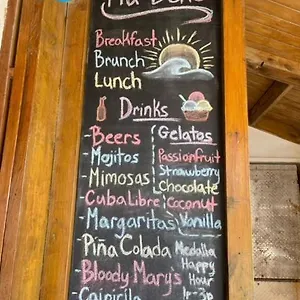 Breakfast
Brunch
Lunch
Drinks
- Beers
- Mojitos
- Mimosas
- Cuba Libre
- Margaritas
- Piña Colada
- Bloody Mary's
Gelatos
Passionfruit
Strawberry
Chocolate
Coconut
Vanilla
Medalla
Happy
Hour